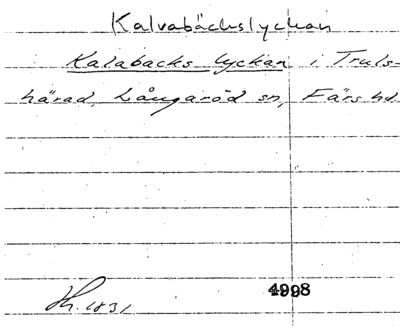 Kalvabäckslyckan
Kalabacks lyckan i Truls-
härad, Långaröd sn, Färs hd.
1831
4998